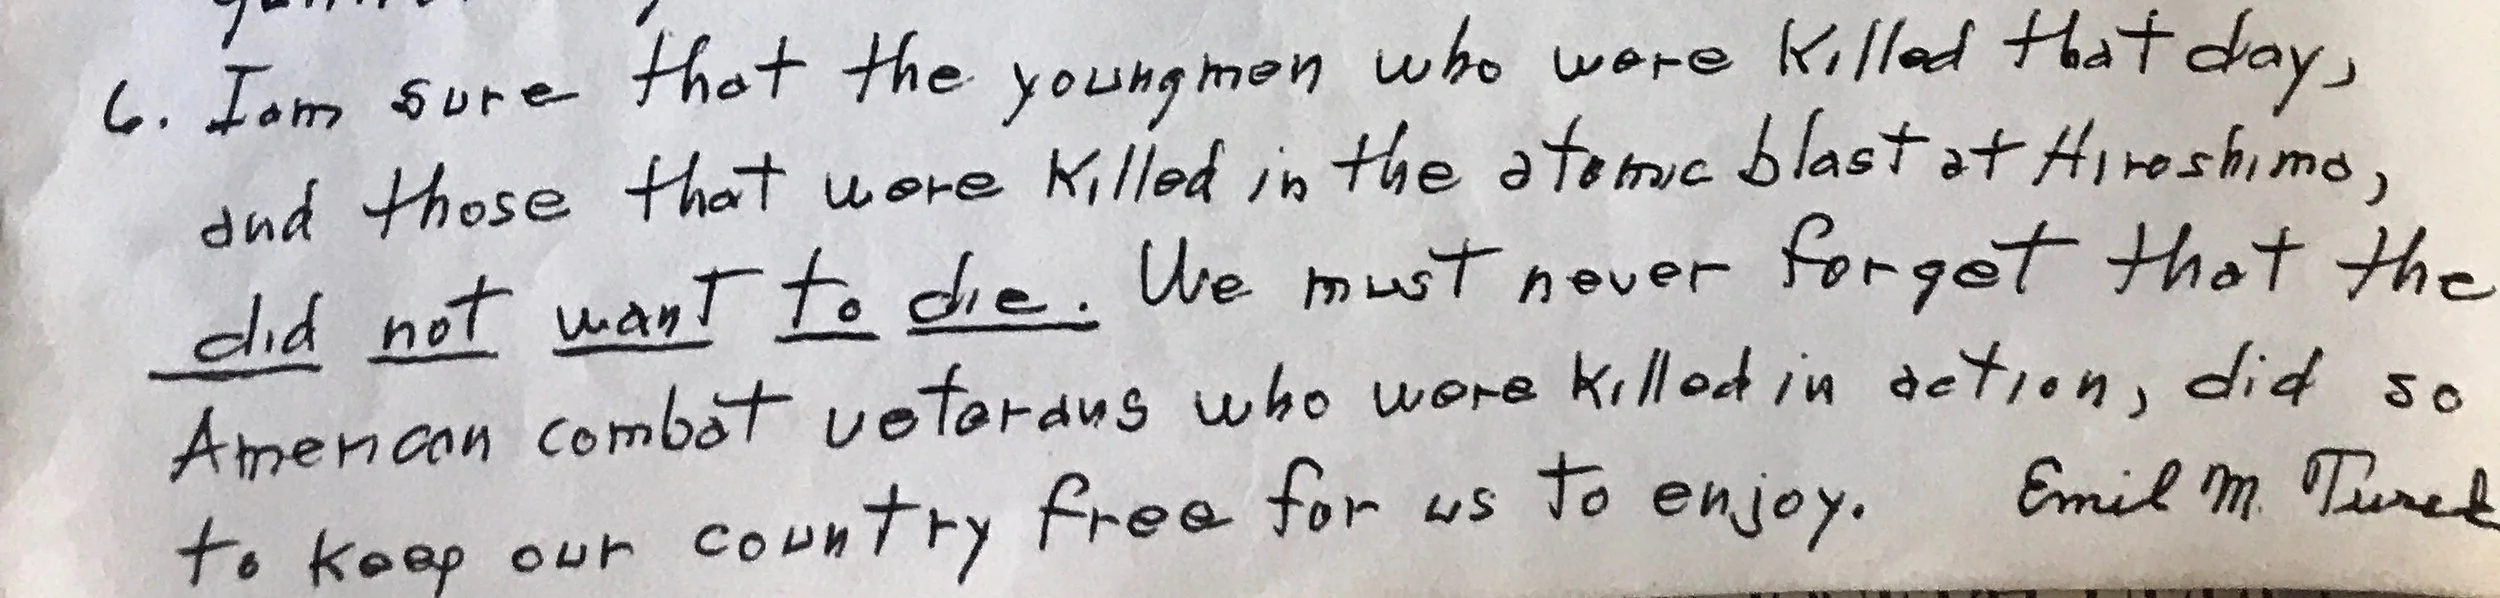 6. I am sure that the young men who were killed that day,
and those that were killed in the atomic blast at Hiroshima,
did not want to die. We must never forget that the
American combat veterans who were killed in action, did so
to keep our country free for us to enjoy. Emil M. Turek